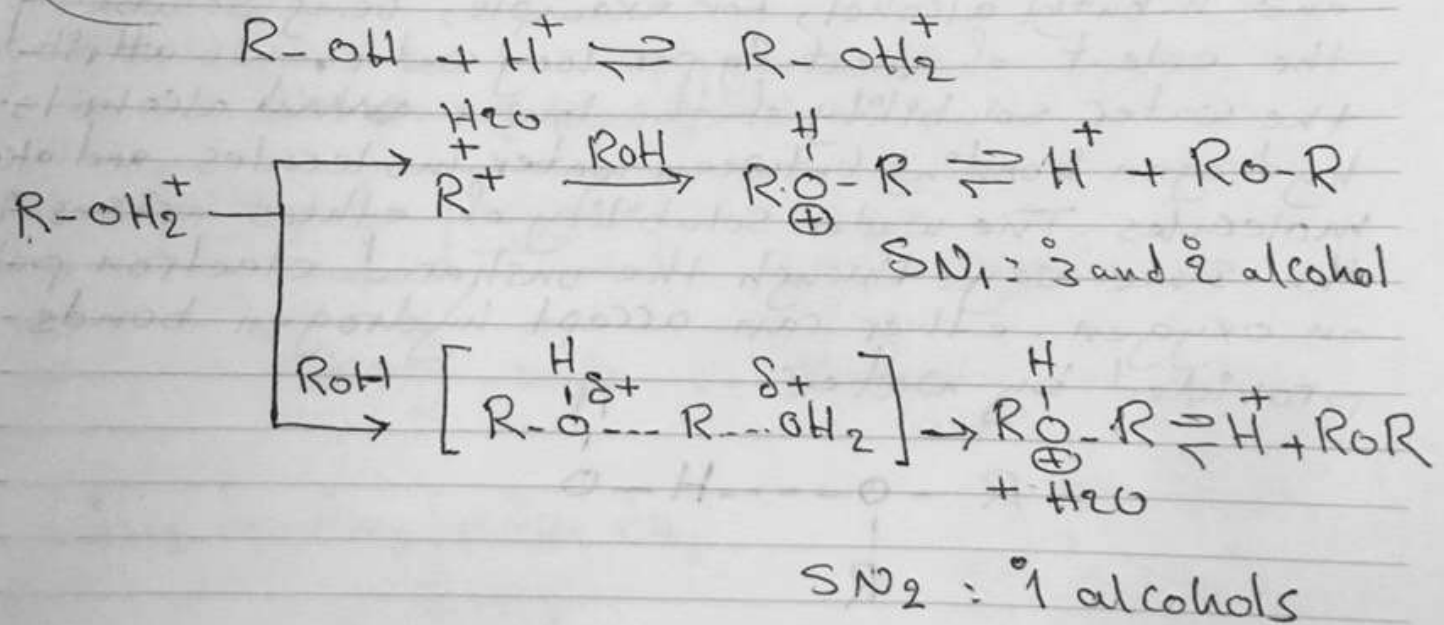 R-OH + H⁺ ⇌ R-OH₂⁺
H2O
+
R-OH₂⁺ → R⁺ ROH → R-O-R ⇌ H⁺ + RO-R
H
⊕
SN₁ : 3° and 2° alcohol
ROH → [R-O---R---OH₂] → RO-R ⇌ H⁺ + ROR
H δ+ δ+ H
⊕
+ H2O
SN2 : 1° alcohols